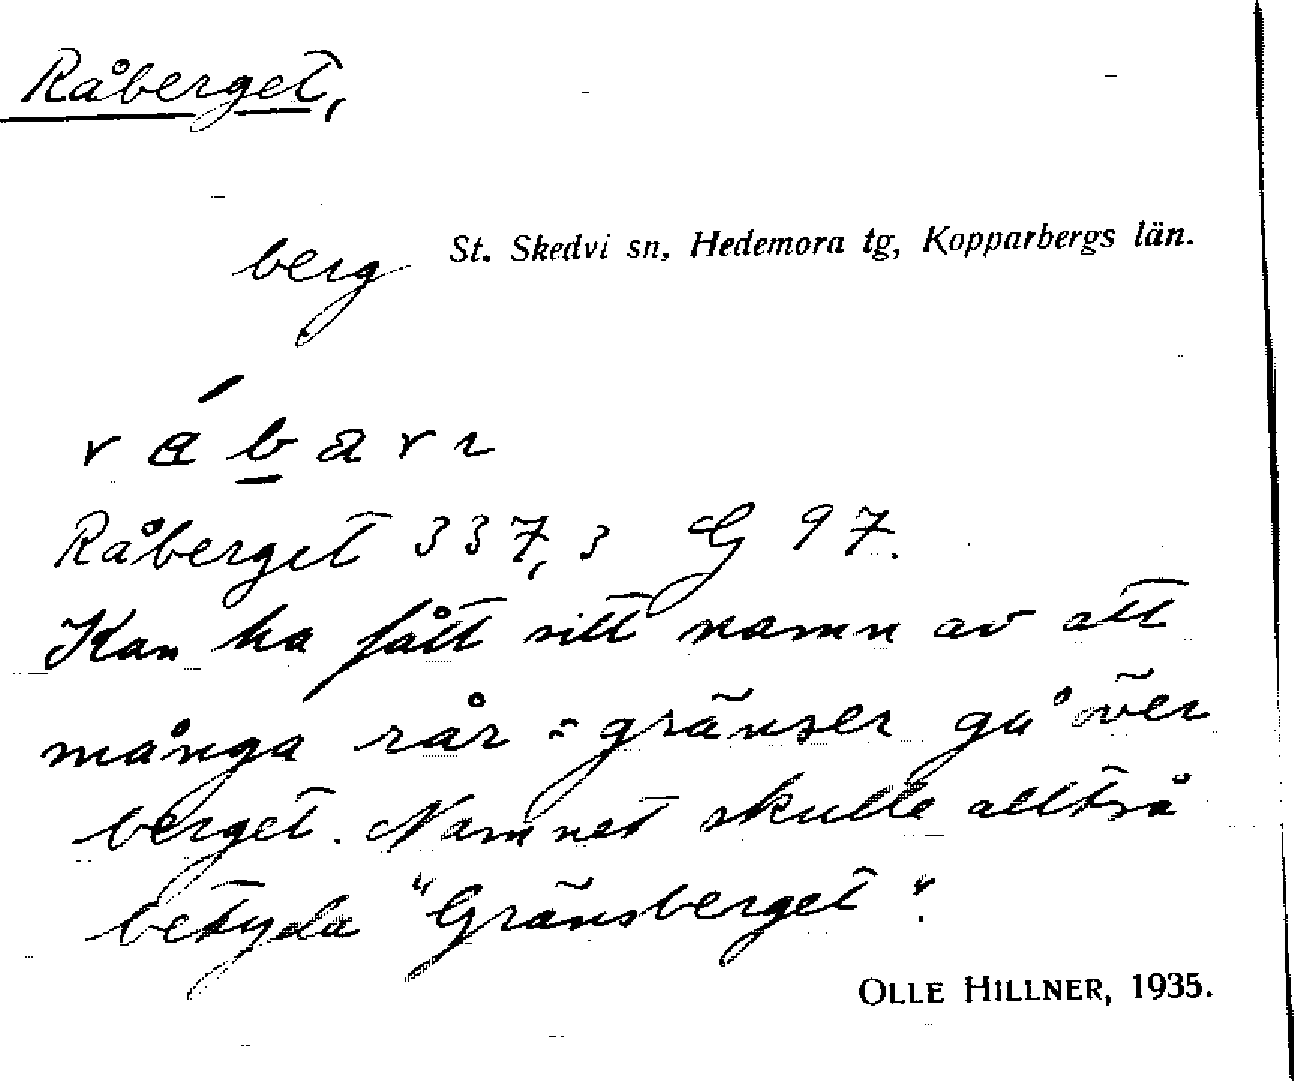 Råberget,
berg St. Skedvi sn, Hedemora tg, Kopparbergs län.
Råberget 337,3 G 97.
Kan ha fått sitt namn av att
många rår = gränser gå över
berget. Namnet skulle alltså
betyda "Gränsberget".
OLLE HILLNER, 1935.